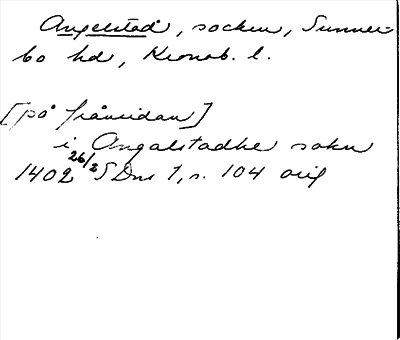 Angelstad, socken, Sunner-
bo hd, Kronob. l.
[på frånsidan]
i Angalstadhe sokn
1402 26/2 SDns 1, s. 104 orig